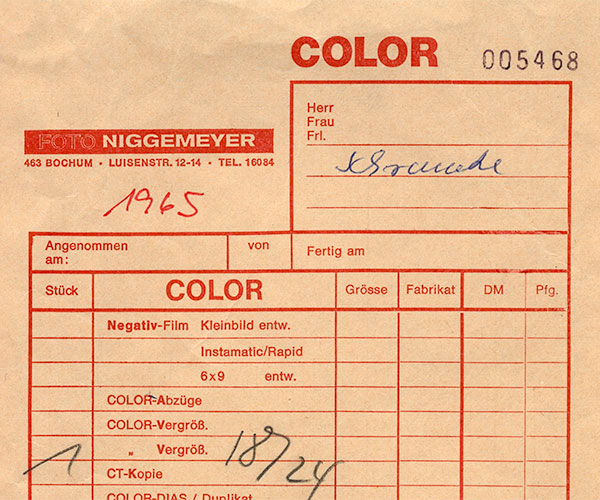 COLOR 005468
Herr
Frau
Frl.
FOTO NIGGEMEYER
463 BOCHUM • LUISENSTR. 12-14 • TEL. 16084
1965
Angenommen von Fertig am
am:
Stück COLOR Grösse Fabrikat DM Pfg.
Negativ-Film Kleinbild entw.
Instamatic/Rapid
6x9 entw.
COLOR-Abzüge
COLOR-Vergröß.
„ Vergröß.
1 18/24
CT-Kopie
COLOR-DIAS / Duplikat